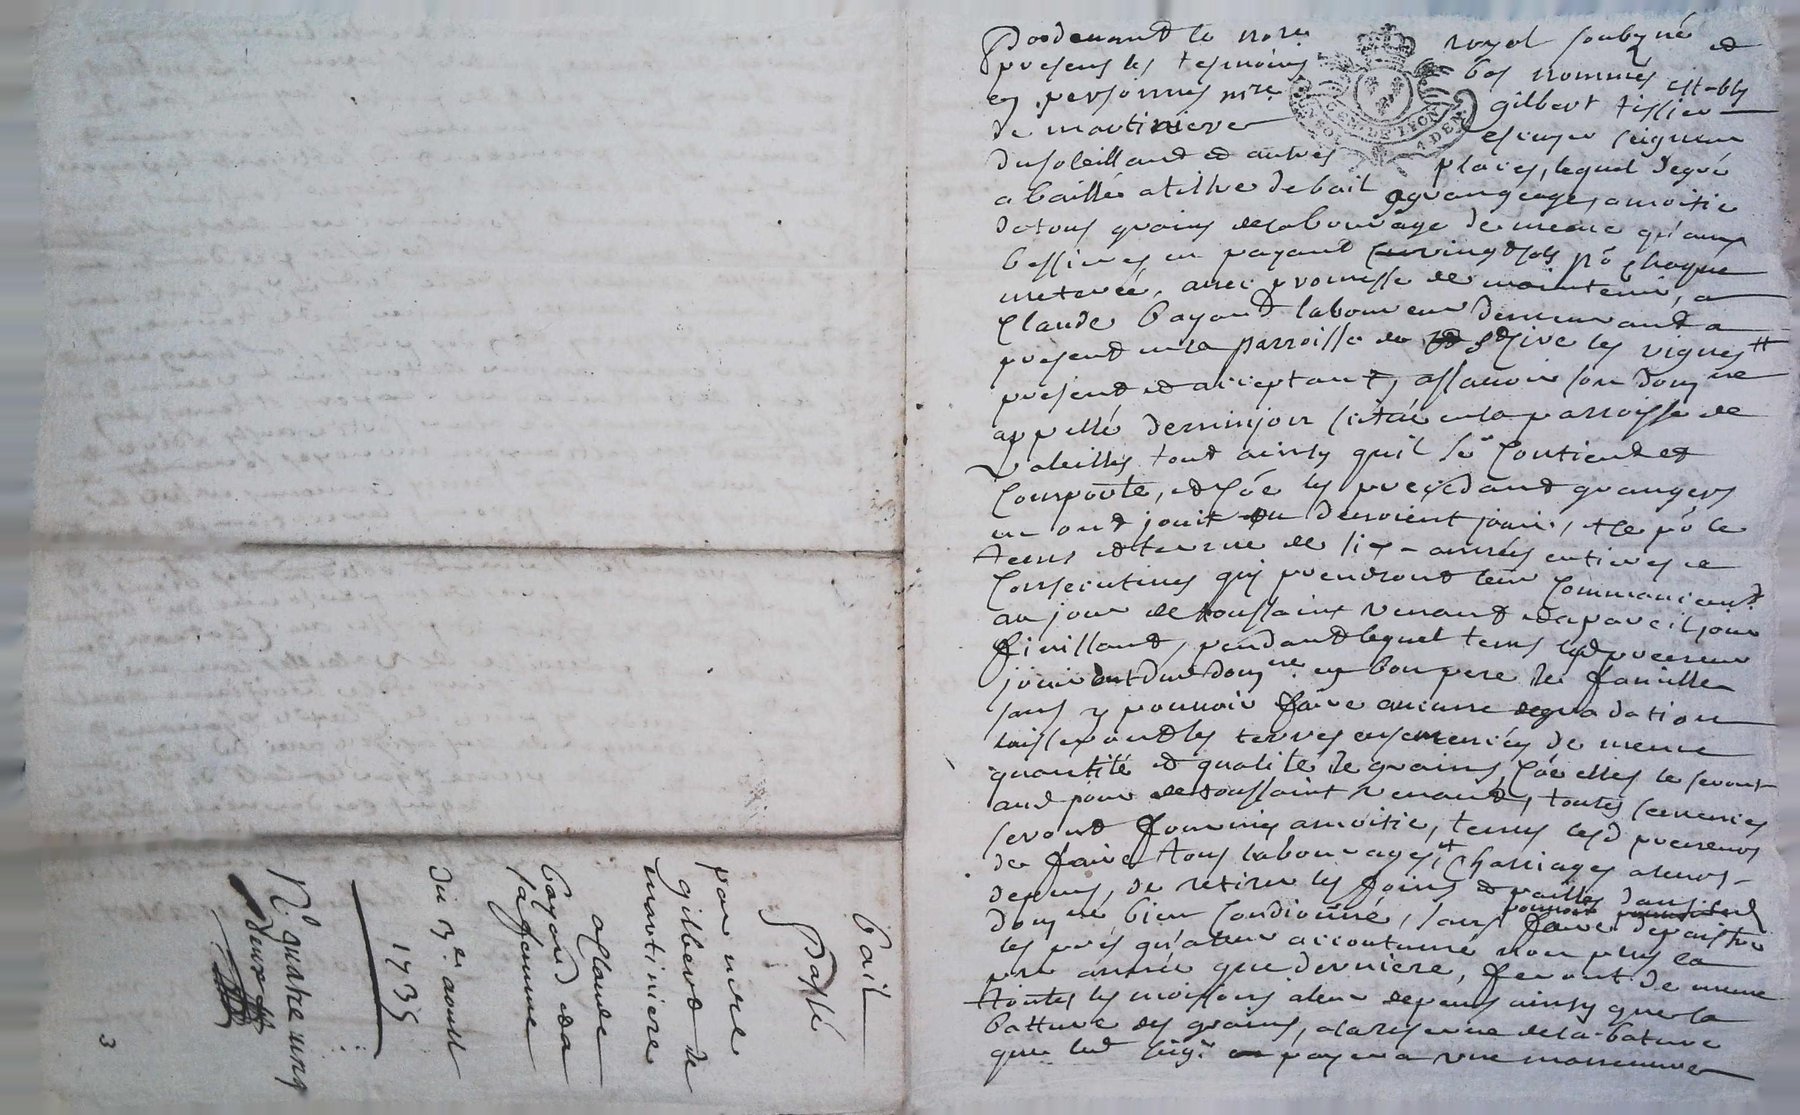 Pardevant le no.re royal soubzné et
presens les tesmoins bas nommés est-bly
en personnes m.re gilbert tissier
de martiniere escuyer seigneur
du soleillant et autres places, lequel de gré
a baillé a tiltre de bail a grangeage, a moitié
de tous grains de labourage de meme qu'aux
bessines en payant vingt sols p.r chaque
meterée, avec promesse de maintenir, a
Claude bayard laboureur demeurant a
present en la parroisse de st sive les vignes
present et acceptant, assavoir son domne
appellé derminjou scitué en la parroisse de
Valeilles tout ainsy qu'il se Contient et
Comporte, et co.e les precedant grangers
en ont jouit ou devoient jouir, et ce p.r le
tems et terme de six années entieres et
Consecutives quy prendront leur Commancem.t
au jour de toussaint venant et a pareil jour
finissant, pendant lequel tems lesd preneurs
jouiront dud dom.ne en bon pere de famille
sans y pouvoir faire aucune degradation
laisseront les terres ensemencées de meme
quantité et qualité de grains, co.e elles le seront
aud jour de toussaint venant, toutes semences
seront fournies a moitié, tenus lesd preneurs
de faire tous labourages et Charriages a leurs
depens, de retirer les foins et pailles dans led
dom.ne bien Conditionné, sans pouvoir faire depaistre
les prés qu'a leur accoutumé non plus la
p.re année que derniere, feront de meme
toutes les moissons a leur depens ainsy que la
batture des grains, a la reserve de la bature
que led seig.r payera une moissonneur
bail
Passé
par mre
gilbert de
martiniere
a Claude
bayard et a
sa femme
du 3.e aoust
1735
N.o quatre vingt
deux
3